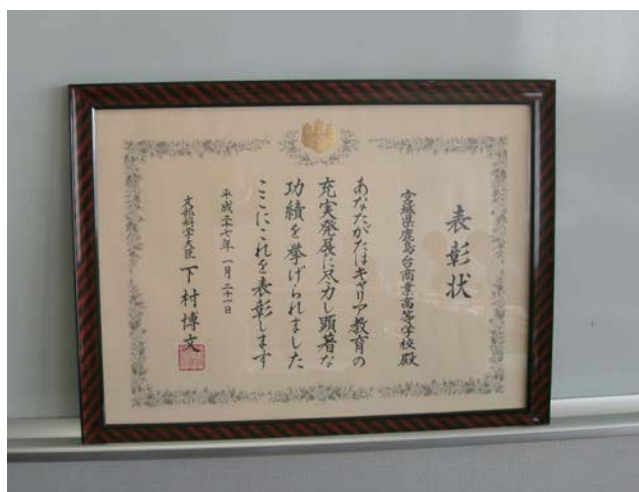 表彰状
宮城県鹿島台商業高等学校殿
あなたがたはキャリア教育の
充実発展に尽力し顕著な
功績を挙げられました
ここにこれを表彰します
平成二十七年一月二十一日
文部科学大臣 下村博文